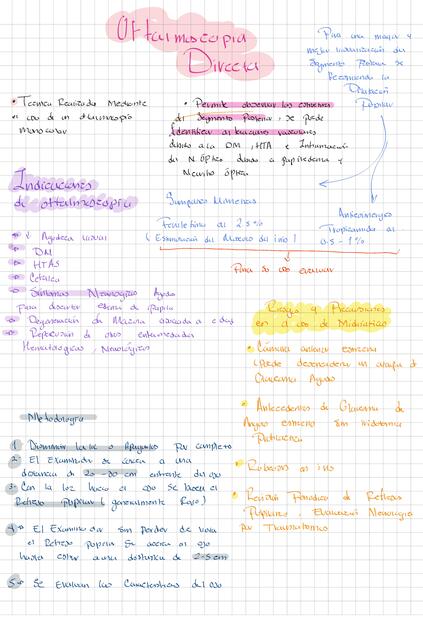 Oftalmoscopia
Directa
Para una mayor y
mejor visualización del
Segmento Posterior se
Recomienda la
Dilatación
Pupilar
• Tecnica Realizada Mediante
el uso de un oftalmoscopio
monocular
• Permite observar las estructuras
del Segmento Posterior, se puede
Identificar alteraciones vasculares
debido a la DM, HTA e Inflamación
del N. Óptico debido a papiledema y
Neuritis óptica
Indicaciones
de oftalmoscopia
Simpatico Mimeticos
Fenilefrina al 2.5%
(Estimulación del Musculo del iris)
Anticolinergico
Tropicamida al
0.5 - 1%
Para so uso evaluar
↓ Agudeza visual
DM
HTAS
Cefalea
Sintomas Neurologicos Agudos
para descartar edema de papila
Degeneración de Macula asociada a edad
Repercusión de otras enfermedades
Hematologicas, Neurologicas
Riesgo y Precauciones
en el uso de Midriaticos
• Cámara anterior estrecha
(Puede desencadenar un ataque de
Glaucoma Agudo
• Antecedentes de Glaucoma de
Angulo estrecho sin iridotomia
• Rubeosis del iris
• Revisión Periodica de Reflejos
Pupilares, Evaluación Neurologica
por Traumatismo
Metodologia
1. Disminuir la luz o Apagarlas por completo
2. El Examinador se coloca a una
distancia de 20 - 30 cm enfrente del ojo
3. Con la luz hacia el ojo se busca el
Reflejo Pupilar (generalmente Rojo)
4. El Examinador sin perder de vista
el Reflejo pupilar se acerca al ojo
hasta estar a una distancia de 2-5 cm
5. Se Evaluan las Caracteristicas del ojo